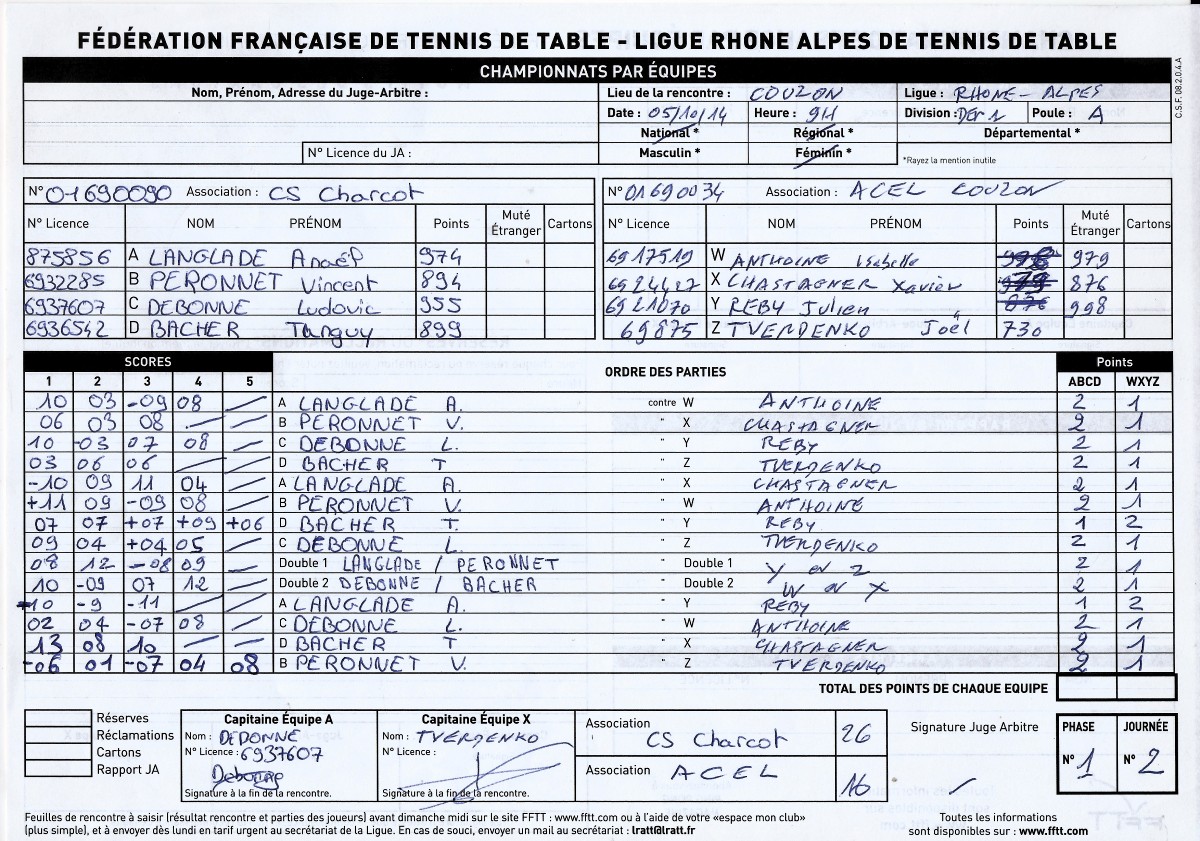 FÉDÉRATION FRANÇAISE DE TENNIS DE TABLE - LIGUE RHONE ALPES DE TENNIS DE TABLE
CHAMPIONNATS PAR ÉQUIPES
C.S.F. 08.2.0.4.A
Nom, Prénom, Adresse du Juge-Arbitre : Lieu de la rencontre : COUZON Ligue : RHONE-ALPES
Date : 05/10/14 Heure : 9H Division : Dép 1 Poule : A
National * Régional * Départemental *
N° Licence du JA : Masculin * Féminin * *Rayez la mention inutile
N° 01690090 Association : CS Charcot N° 01690034 Association : ACEL COUZON
N° Licence NOM PRÉNOM Points Muté Étranger Cartons N° Licence NOM PRÉNOM Points Muté Étranger Cartons
875856 A LANGLADE Anaël 974 6917519 W ANTHOINE Isabelle 979
6932285 B PERONNET Vincent 894 6924427 X CHASTAGNER Xavier 876
6937607 C DEBONNE Ludovic 955 6921070 Y REBY Julien 998
6936542 D BACHER Tanguy 899 69875 Z TVERDENKO Joël 730
SCORES ORDRE DES PARTIES Points
1 2 3 4 5 ABCD WXYZ
10 03 -09 08 — A LANGLADE A. contre W ANTHOINE 2 1
06 03 08 — — B PERONNET V. " X CHASTAGNER 2 1
10 -03 07 08 — C DEBONNE L. " Y REBY 2 1
03 06 06 — — D BACHER T " Z TVERDENKO 2 1
-10 09 11 04 — A LANGLADE A. " X CHASTAGNER 2 1
+11 09 -09 08 — B PERONNET V. " W ANTHOINE 2 1
07 07 +07 +09 +06 D BACHER T. " Y REBY 1 2
09 04 +04 05 — C DEBONNE L. " Z TVERDENKO 2 1
08 12 -08 09 — Double 1 LANGLADE / PERONNET " Double 1 Y et Z 2 1
10 -09 07 12 — Double 2 DEBONNE / BACHER " Double 2 W et X 2 1
-10 -9 -11 — — A LANGLADE A. " Y REBY 1 2
02 04 -07 08 — C DEBONNE L. " W ANTHOINE 2 1
13 08 10 — — D BACHER T " X CHASTAGNER 2 1
-06 01 -07 04 08 B PERONNET V. " Z TVERDENKO 2 1
TOTAL DES POINTS DE CHAQUE EQUIPE
Réserves
Réclamations
Cartons
Rapport JA
Capitaine Équipe A
Nom : DEBONNE
N° Licence : 6937607
Debonne
Signature à la fin de la rencontre.
Capitaine Équipe X
Nom : TVERDENKO
N° Licence :
Signature à la fin de la rencontre.
Association CS Charcot 26
Association ACEL 16
Signature Juge Arbitre
PHASE JOURNÉE
N° 1 N° 2
Feuilles de rencontre à saisir (résultat rencontre et parties des joueurs) avant dimanche midi sur le site FFTT : www.fftt.com ou à l'aide de votre «espace mon club»
(plus simple), et à envoyer dès lundi en tarif urgent au secrétariat de la Ligue. En cas de souci, envoyer un mail au secrétariat : lratt@lratt.fr
Toutes les informations
sont disponibles sur : www.fftt.com